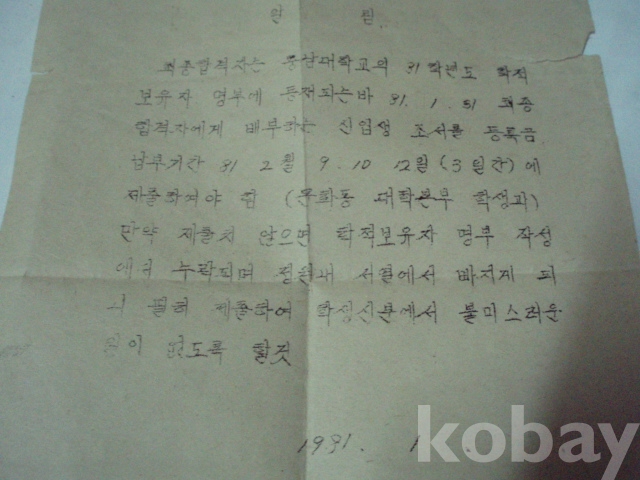 알 림
최종합격자는 충남대학교의 81 학년도 학적
보유자 명부에 등재되는바 81. 1. 31 최종
합격자에게 배부하는 신입생 조서를 등록금
납부기간 81 2월 9. 10 12월 (3일간) 에
제출하여야 함 (문화동 대학본부 학생과)
만약 제출치 않으면 학적보유자 명부 작성
에서 누락되며 정원내 서열에서 빠지게 되
니 필히 제출하여 학생신분에서 불미스러운
일이 없도록 할것
1981. 1
kobay